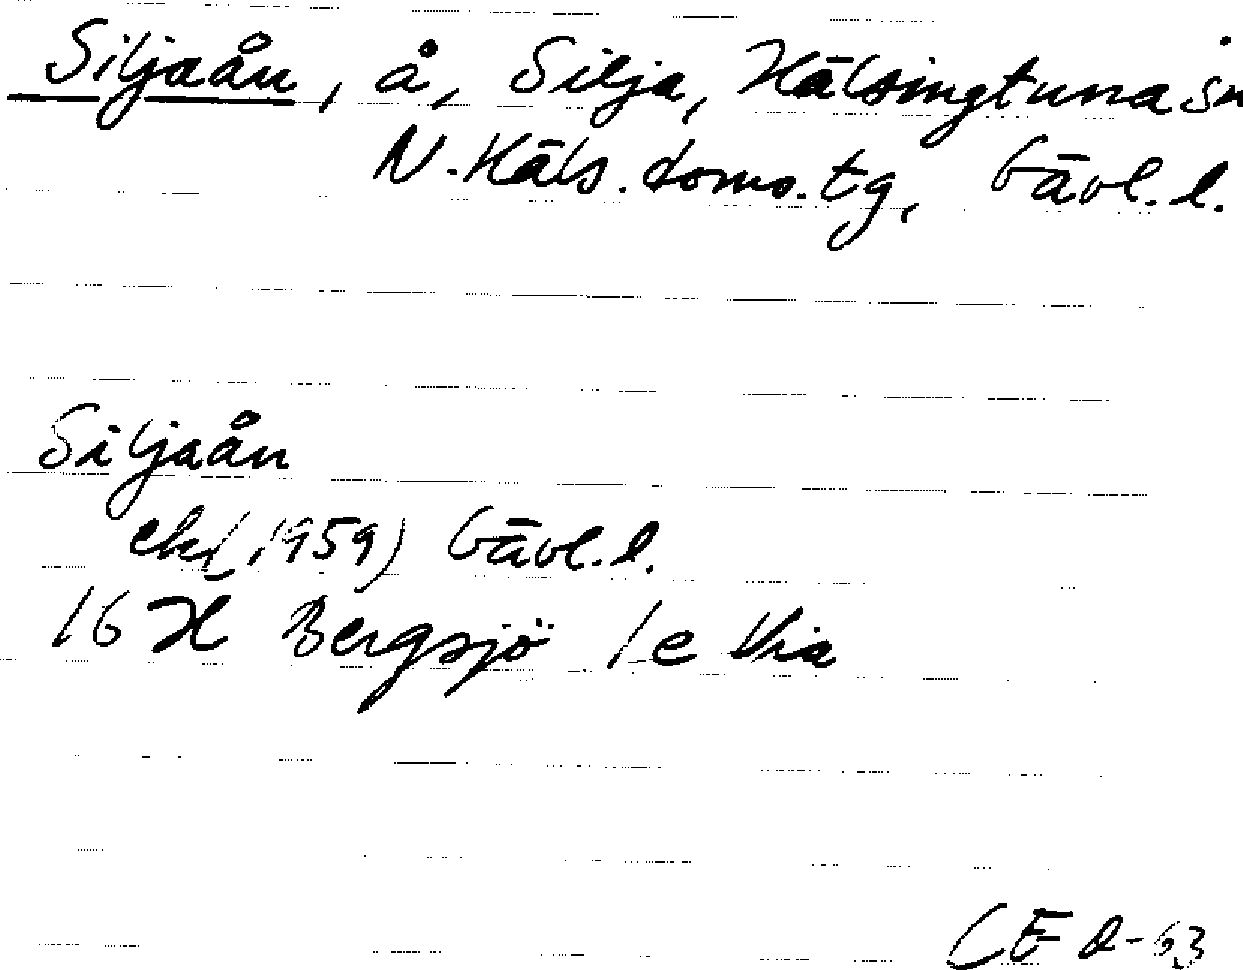 Siljaån, å, Silja, Hälsingtuna sn
N. Häls. doms. tg, Gävl. l.
Siljaån
ek (1959) Gävl. l.
16 H Bergsjö 1 e